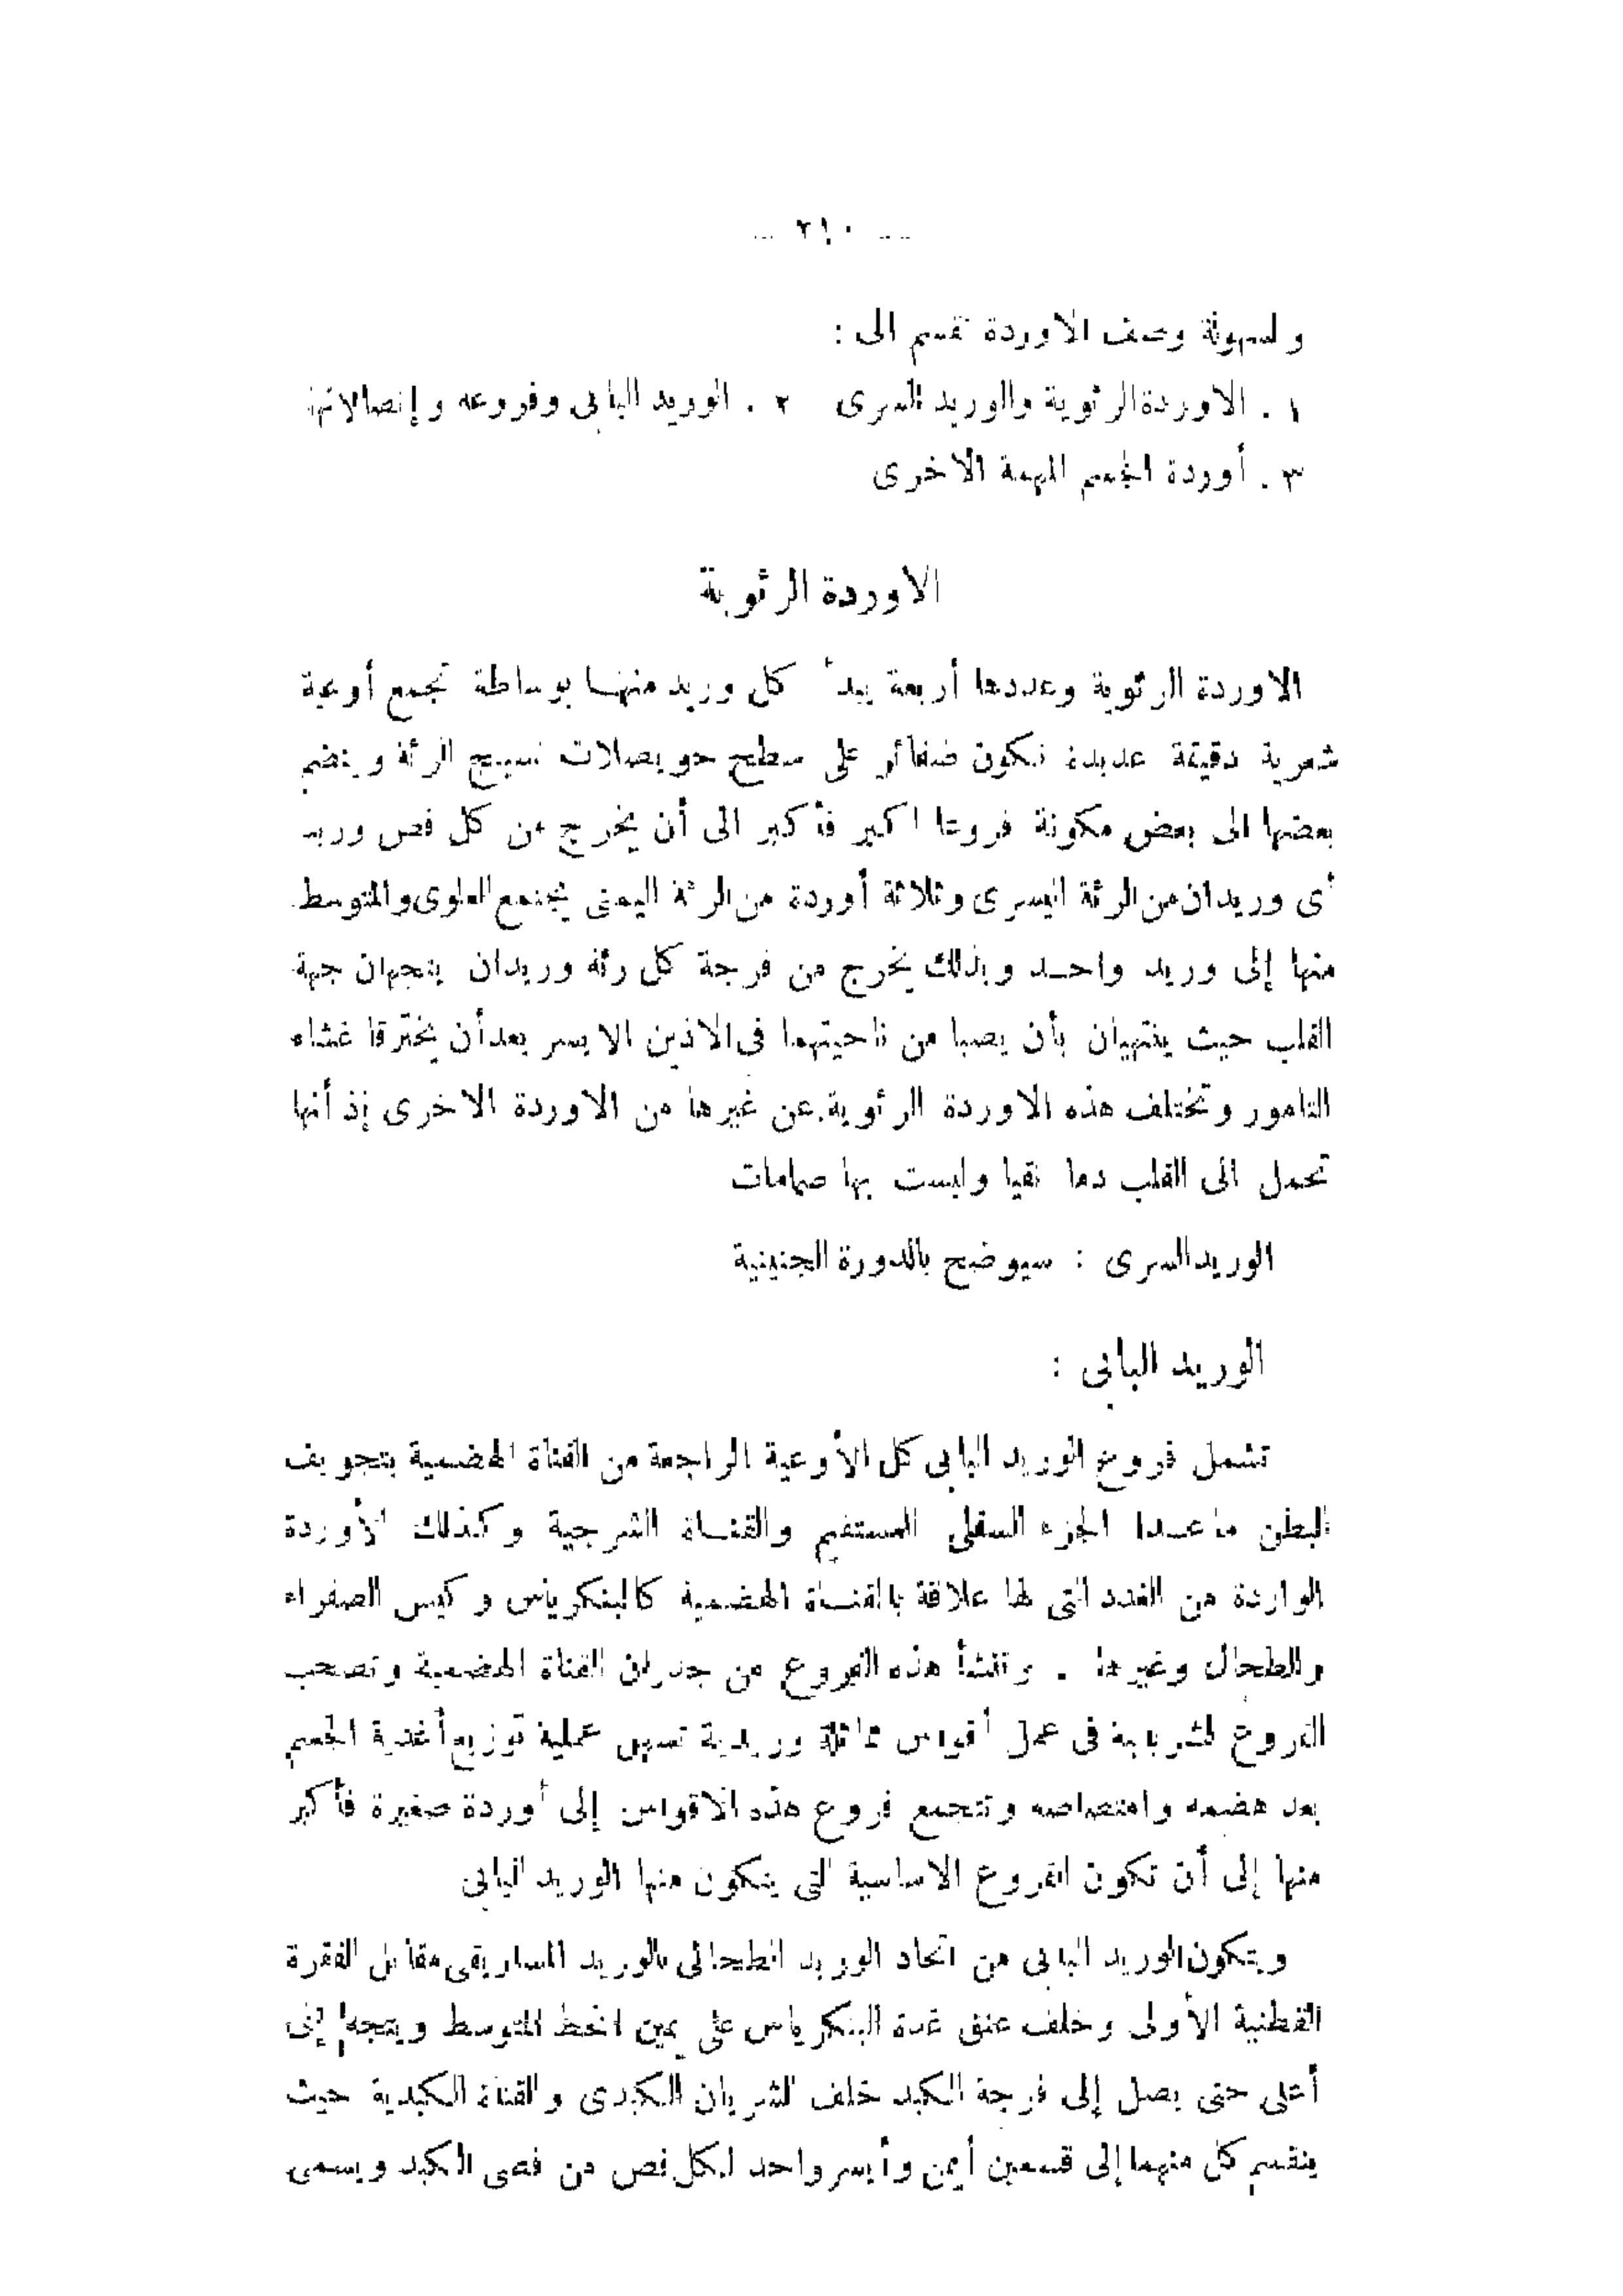 — ٢١٠ —
ولسهولة وصف الاوردة تقسم الى :
١ . الاوردة الرئوية والوريد السرى ٢ . الوريد البابى وفروعه وإتصالاتها
٣ . أوردة الجسم المهمة الاخرى
الاوردة الرئوية
الاوردة الرئوية وعددها أربعة يبدأ كل وريد منها بوساطة تجمع أوعية
شعرية دقيقة عديدة تكون ضفائر على سطح حويصلات نسيج الرئة وينضم
بعضها الى بعض مكونة فروعا اكبر فأكبر الى أن يخرج من كل فص وريد
أى وريدان من الرئة اليسرى وثلاثة أوردة من الرئة اليمنى يجتمع العلوى والمتوسط
منها إلى وريد واحد وبذلك يخرج من فرجة كل رئة وريدان يتجهان جهة
القلب حيث ينتهيان بأن يصبا من ناحيتهما فى الاذين الايسر بعد أن يخترقا غشاء
التامور وتختلف هذه الاوردة الرئوية عن غيرها من الاوردة الاخرى إذ أنها
تحمل الى القلب دما نقيا وليست بها صمامات
الوريد السرى : سيوضح بالدورة الجنينية
الوريد البابى :
تشمل فروع الوريد البابى كل الأوعية الراجعة من القناة الهضمية بتجويف
البطن ما عدا الجزء السفلى المستقيم والقناة الشرجية وكذلك الأوردة
الواردة من الغدد التى لها علاقة بالقناة الهضمية كالبنكرياس وكيس الصفراء
والطحال وغيرها . وتنشأ هذه الفروع من جدران القناة الهضمية وتصحب
الفروع الشريانية فى عمل أقواس مماثلة وريدية تسهل عملية توزيع أغذية الجسم
بعد هضمه وامتصاصه وتتجمع فروع هذه الاقواس إلى أوردة صغيرة فأكبر
منها إلى أن تكون الفروع الاساسية التى يتكون منها الوريد البابى
ويتكون الوريد البابى من اتحاد الوريد الطحالى بالوريد المساريقى مقابل الفقرة
القطنية الأولى وخلف عنق غدة البنكرياس على يمين الخط المتوسط ويتجه إلى
أعلى حتى يصل إلى فرجة الكبد خلف الشريان الكبدى والقناة الكبدية حيث
ينقسم كل منهما إلى قسمين أيمن وأيسر واحد لكل فص من فصى الكبد ويسمى